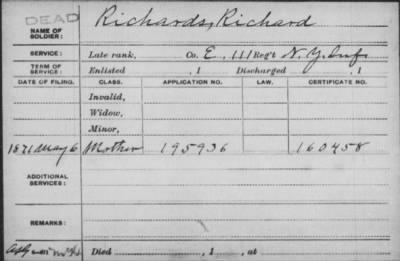 DEAD
NAME OF SOLDIER: Richards, Richard
SERVICE: Late rank, Co. E, 111 Reg't N.Y. Inf
TERM OF SERVICE: Enlisted , 1 Discharged , 1
DATE OF FILING. CLASS. APPLICATION NO. LAW. CERTIFICATE NO.
Invalid,
Widow,
Minor,
1871 May 6 Mother 195936 160458
ADDITIONAL SERVICES:
REMARKS:
Died , 1 , at